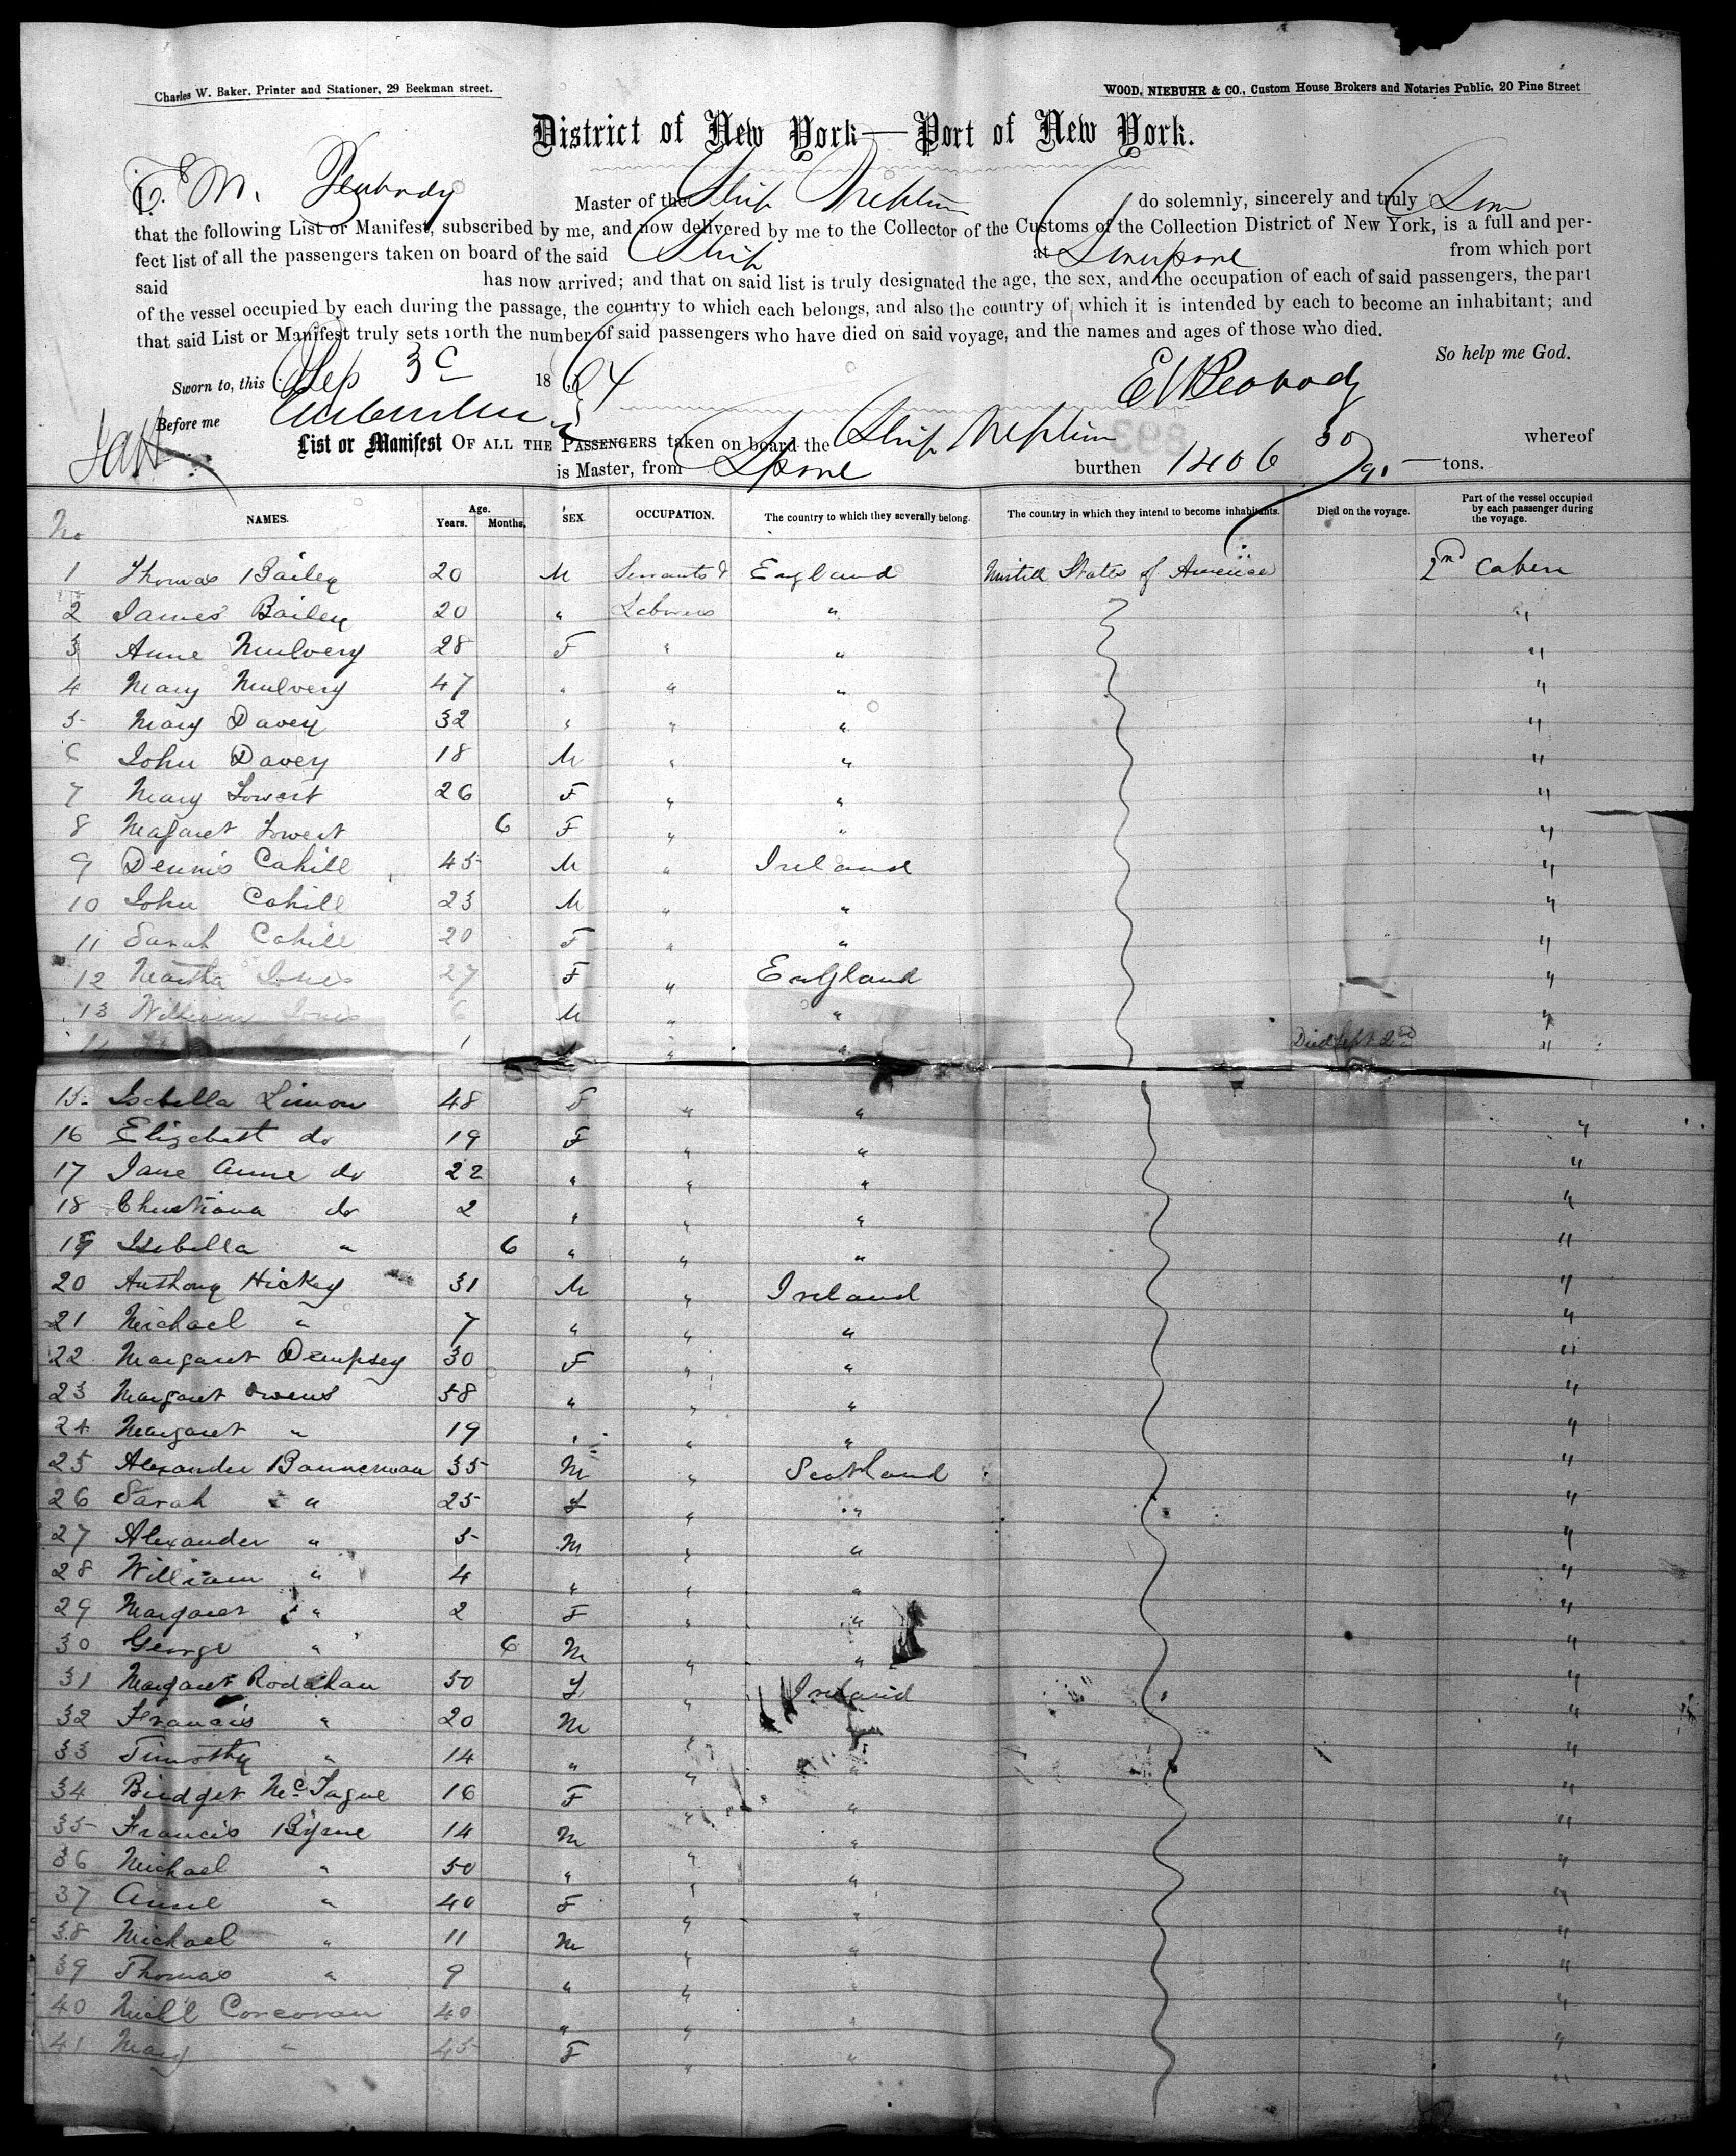 Charles W. Baker, Printer and Stationer, 29 Beekman street.
WOOD, NIEBUHR & CO., Custom House Brokers and Notaries Public, 20 Pine Street
District of New York—Port of New York.
I. E M. Peabody Master of the Ship Neptune do solemnly, sincerely and truly
that the following List or Manifest, subscribed by me, and now delivered by me to the Collector of the Customs of the Collection District of New York, is a full and per-
fect list of all the passengers taken on board of the said Ship at Liverpool from which port
said has now arrived; and that on said list is truly designated the age, the sex, and the occupation of each of said passengers, the part
of the vessel occupied by each during the passage, the country to which each belongs, and also the country of which it is intended by each to become an inhabitant; and
that said List or Manifest truly sets forth the number of said passengers who have died on said voyage, and the names and ages of those who died.
So help me God.
Sworn to, this Sep 3 1864 E W Peabody
Before me
List or Manifest OF ALL THE PASSENGERS taken on board the Ship Neptune whereof
is Master, from Lpool burthen 1406 30/95 tons.
No NAMES. Age. Years. Months. SEX. OCCUPATION. The country to which they severally belong. The country in which they intend to become inhabitants. Died on the voyage. Part of the vessel occupied by each passenger during the voyage.
1 Thomas Bailey 20 M Servants & England United States of America 2nd Caben
2 James Bailey 20 " Laborers " "
3 Anne Mulvery 28 F " " "
4 Mary Mulvery 47 " " " "
5 Mary Davey 32 " " " "
6 John Davey 18 M " " "
7 Mary Lowert 26 F " " "
8 Magaret Lowert 6 F " " "
9 Dennis Cahill 45 M " Ireland "
10 John Cahill 23 M " " "
11 Sarah Cahill 20 F " " "
12 Martha Jones 27 F " England "
13 William Jones 6 M " " "
14 1 " " " Died Sept 2nd "
15 Isabella Limon 48 F " " "
16 Elizabeth do 19 F " " "
17 Jane Anne do 22 " " " "
18 Christiana do 2 " " " "
19 Isabella " 6 " " " "
20 Anthony Hickey 31 M " Ireland "
21 Michael " 7 " " " "
22 Margaret Dempsey 30 F " " "
23 Margaret Owens 58 " " " "
24 Margaret " 19 " " " "
25 Alexander Bannerman 35 M " Scotland "
26 Sarah " 25 F " " "
27 Alexander " 5 M " " "
28 William " 4 " " " "
29 Margaret " 2 F " " "
30 George " 6 M " " "
31 Margaret Rodahan 50 F " Ireland "
32 Francis " 20 M " "
33 Timothy " 14 " " " "
34 Bridget McTague 16 F " " "
35 Francis Byrne 14 M " " "
36 Michael " 50 " " " "
37 Anne " 40 F " " "
38 Michael " 11 M " " "
39 Thomas " 9 " " " "
40 Mich'l Corcoran 40 " " " "
41 Mary " 45 F " " "